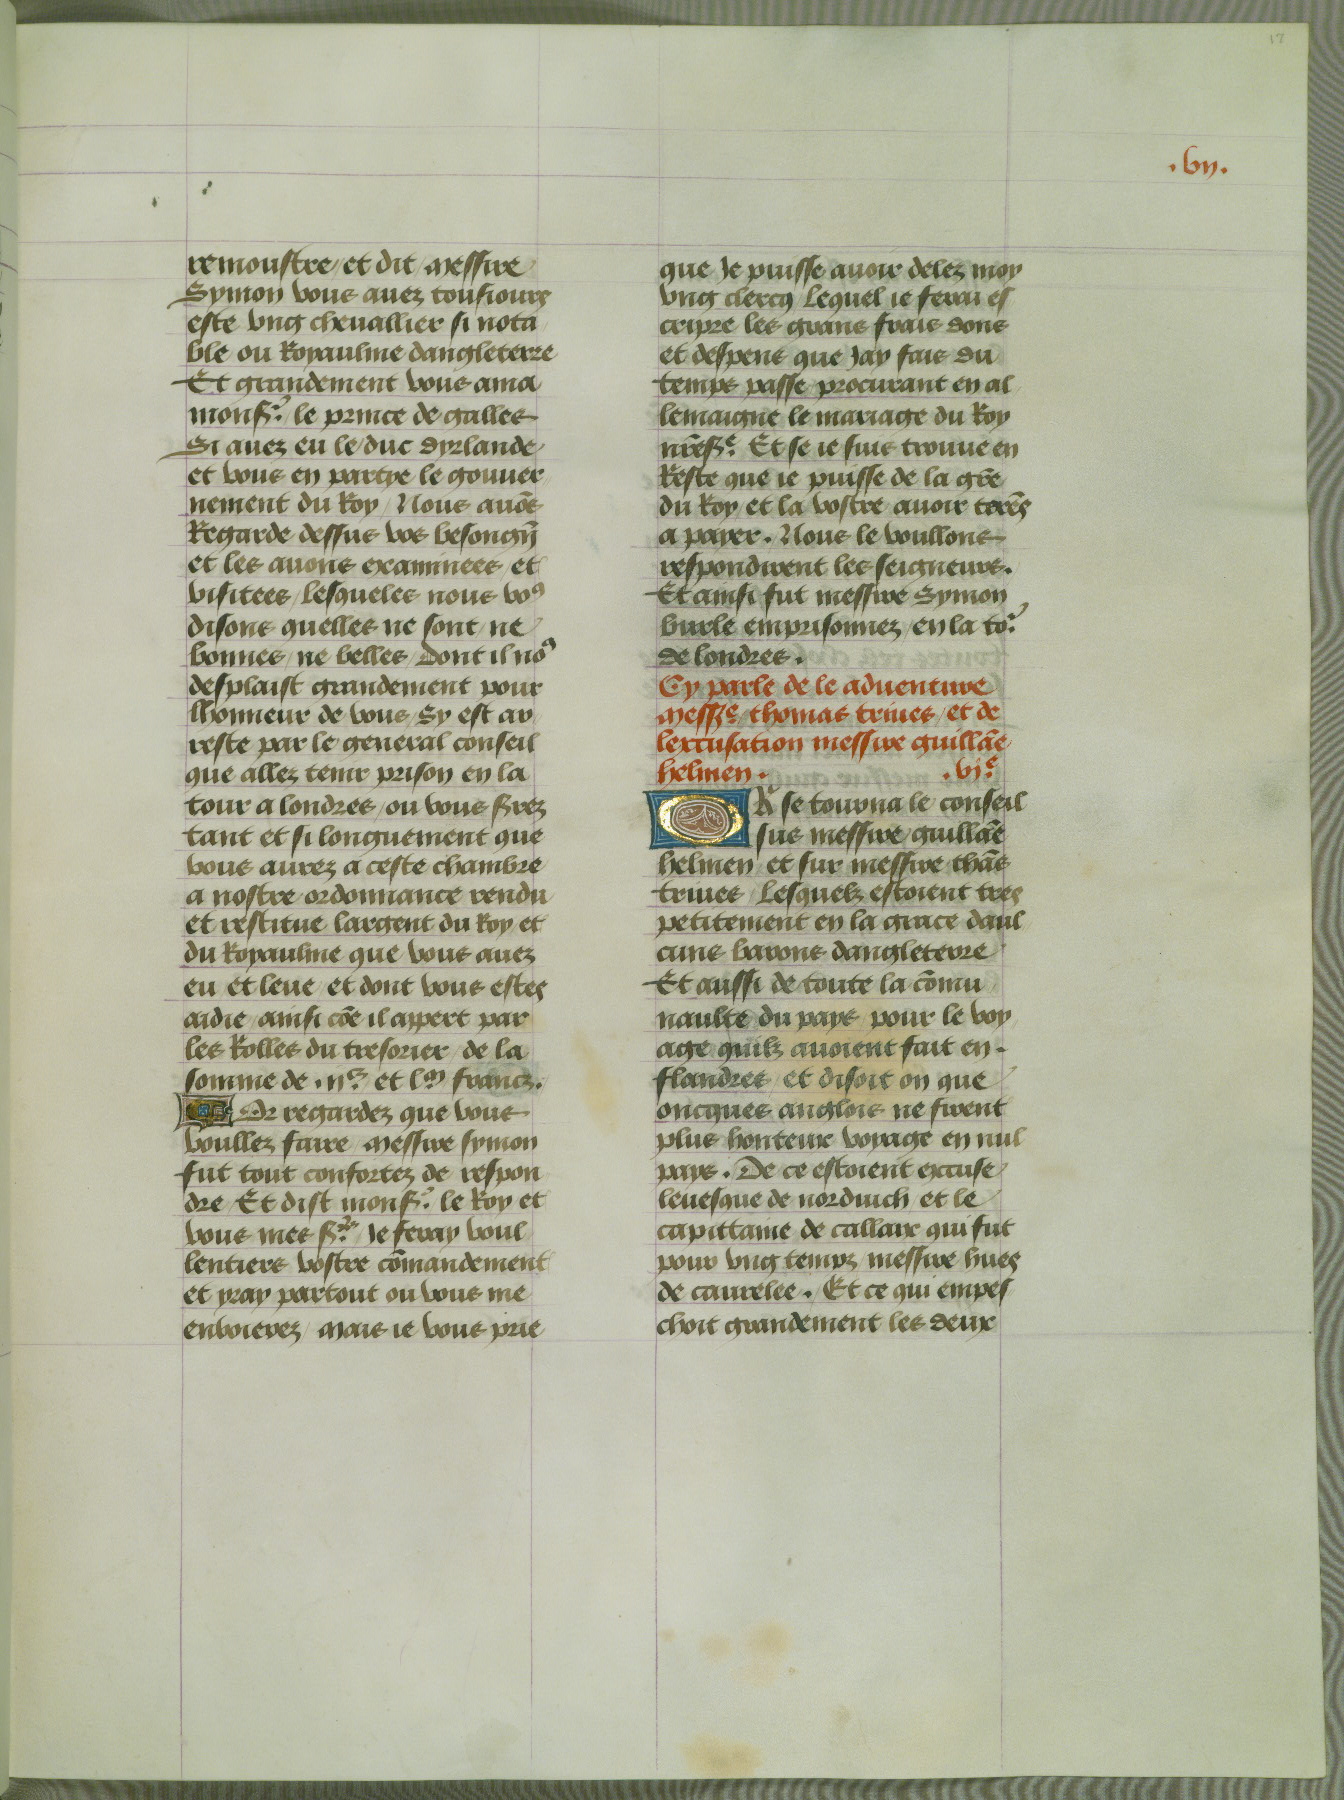 .vij.
remoustre et dit messire
Symon vous auez tousiours
este vng cheuallier si nota
ble ou Royaulme dangleterre
Et grandement vous ama
monsr. le prince de galles
Si auez eu le duc dyrlande
et vous en partye le gouuer
nement du Roy / Nous auõs
Regarde dessus vos besongñ
et les auons examinees et
visitees / lesqueles nous voꝰ
disons quelles ne sont ne
bonnes / ne belles / Dont il noꝰ
desplaist grandement pour
lhonneur de vous / Sy est ar
reste par le general conseil
que allez tenir prison en la
tour a londres / ou vous srez
tant et si longuement que
vous aurez a ceste chambre
a nostre ordonnance rendu
et restitue largent du Roy et
du Royaulme que vous auez
eu et leue / et dont vous estes
aidie / ainsi cõe il appert par
les Rolles du tresorier / de la
somme de .ijc. et lm francz.
Or regardez que vous
voullez faire / messire symon
fut tout confortez de respon
dre / Et dist monsr. le Roy et
vous mes srs. Je feray voul
lentiers vostre cõmandement
et yray partout ou vous me
enuoierez / mais ie vous prie
que Je puisse auoir delez moy
vng clercq lequel ie feray es
cripre les grans frais dons
et despens que Jay fais du
temps passe procurant en al
lemaigne le mariage du Roy
nrẽ sre. Et se ie suis trouue en
Reste que ie puisse de la grẽ
du Roy et la vostre auoir termẽs
a payer. Nous le voullons
respondirent les seigneurs.
Et ainsi fut messire Symon
burle emprisonnez / en la tor.
de londres.
Cy parle de le aduenture
messre. thomas triues / et de
lexcusation messire guillãe
helmen. .vje.
OR se tourna le conseil
sus messire guillãe
helmen et sur messire thãs
triues lesquelz estoient tres
petitement en la grace daul
cuns barons dangleterre
Et aussi de toute la cõmu
naulte du pays pour le voy
age quilz auoient fait en
flandres / et disoit on que
oncques anglois ne firent
plus honteux voyage en nul
pays. De ce estoient excuse
leuesque de norduich et le
capittaine de callaix qui fut
pour vng temps messire hues
de caurelee. Et ce qui empes
choit grandement les deux